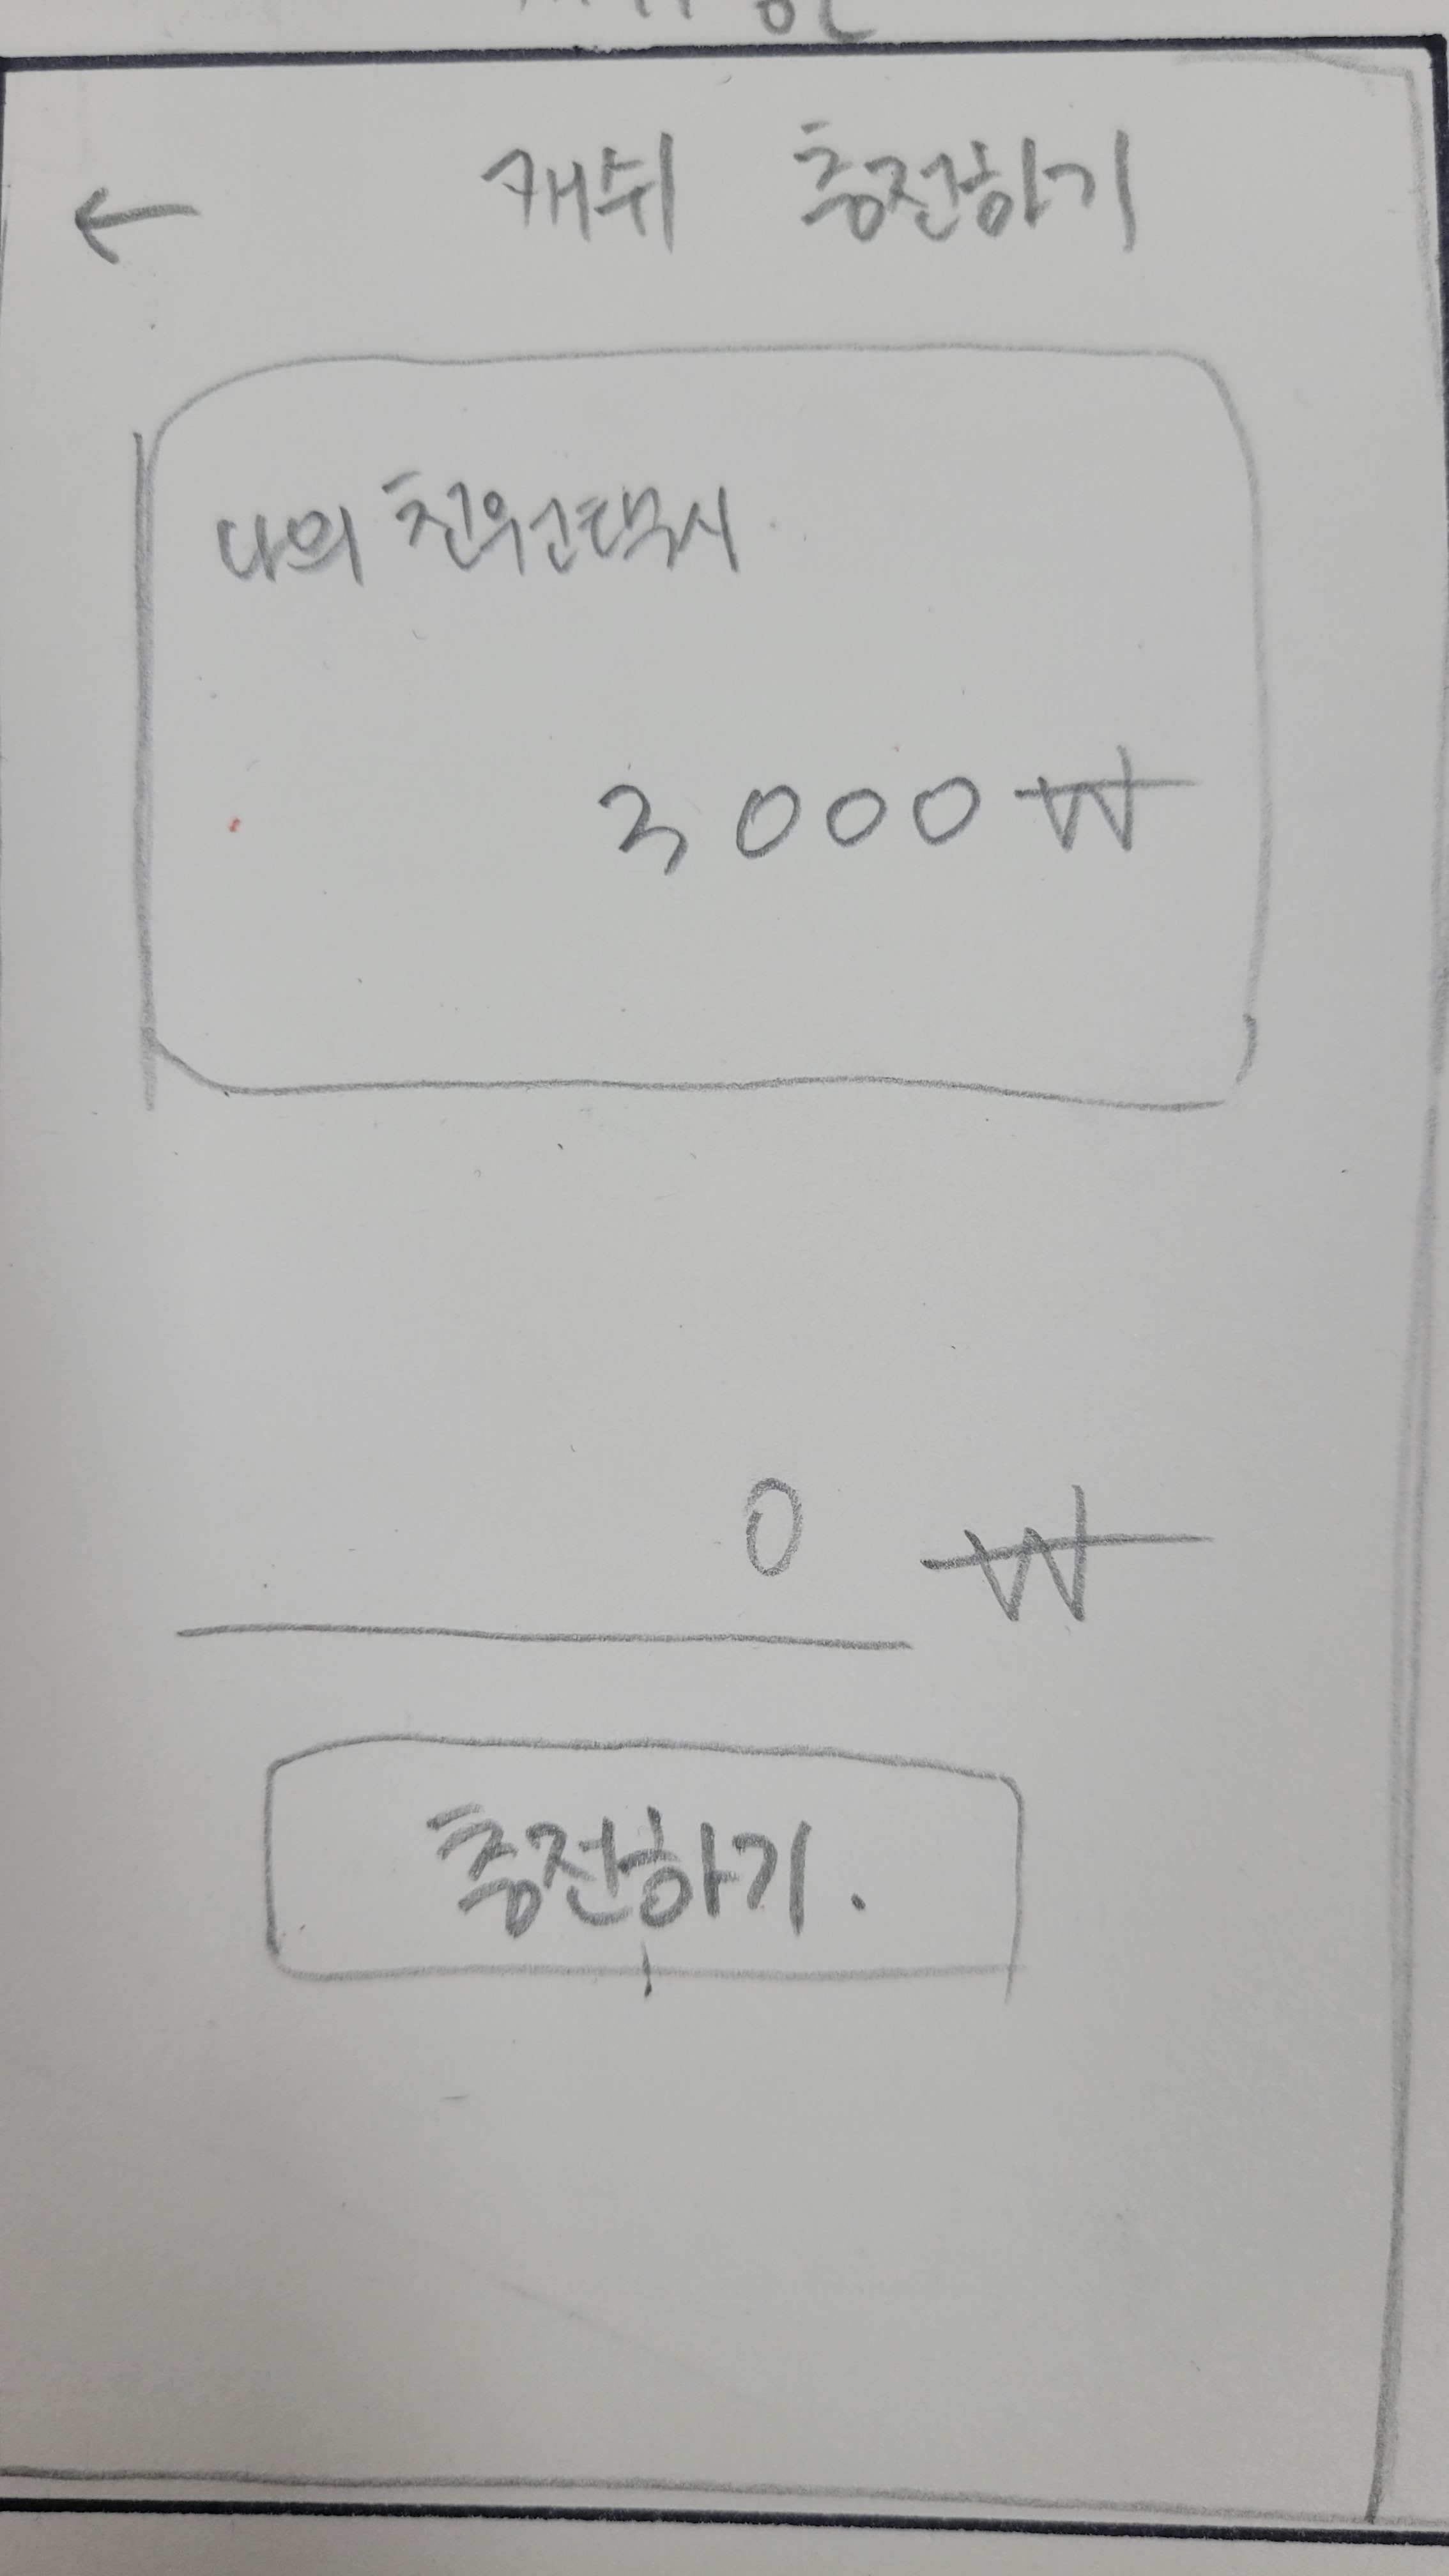 ← 캐쉬 충전하기
나의
3000₩
0 ₩
충전하기.